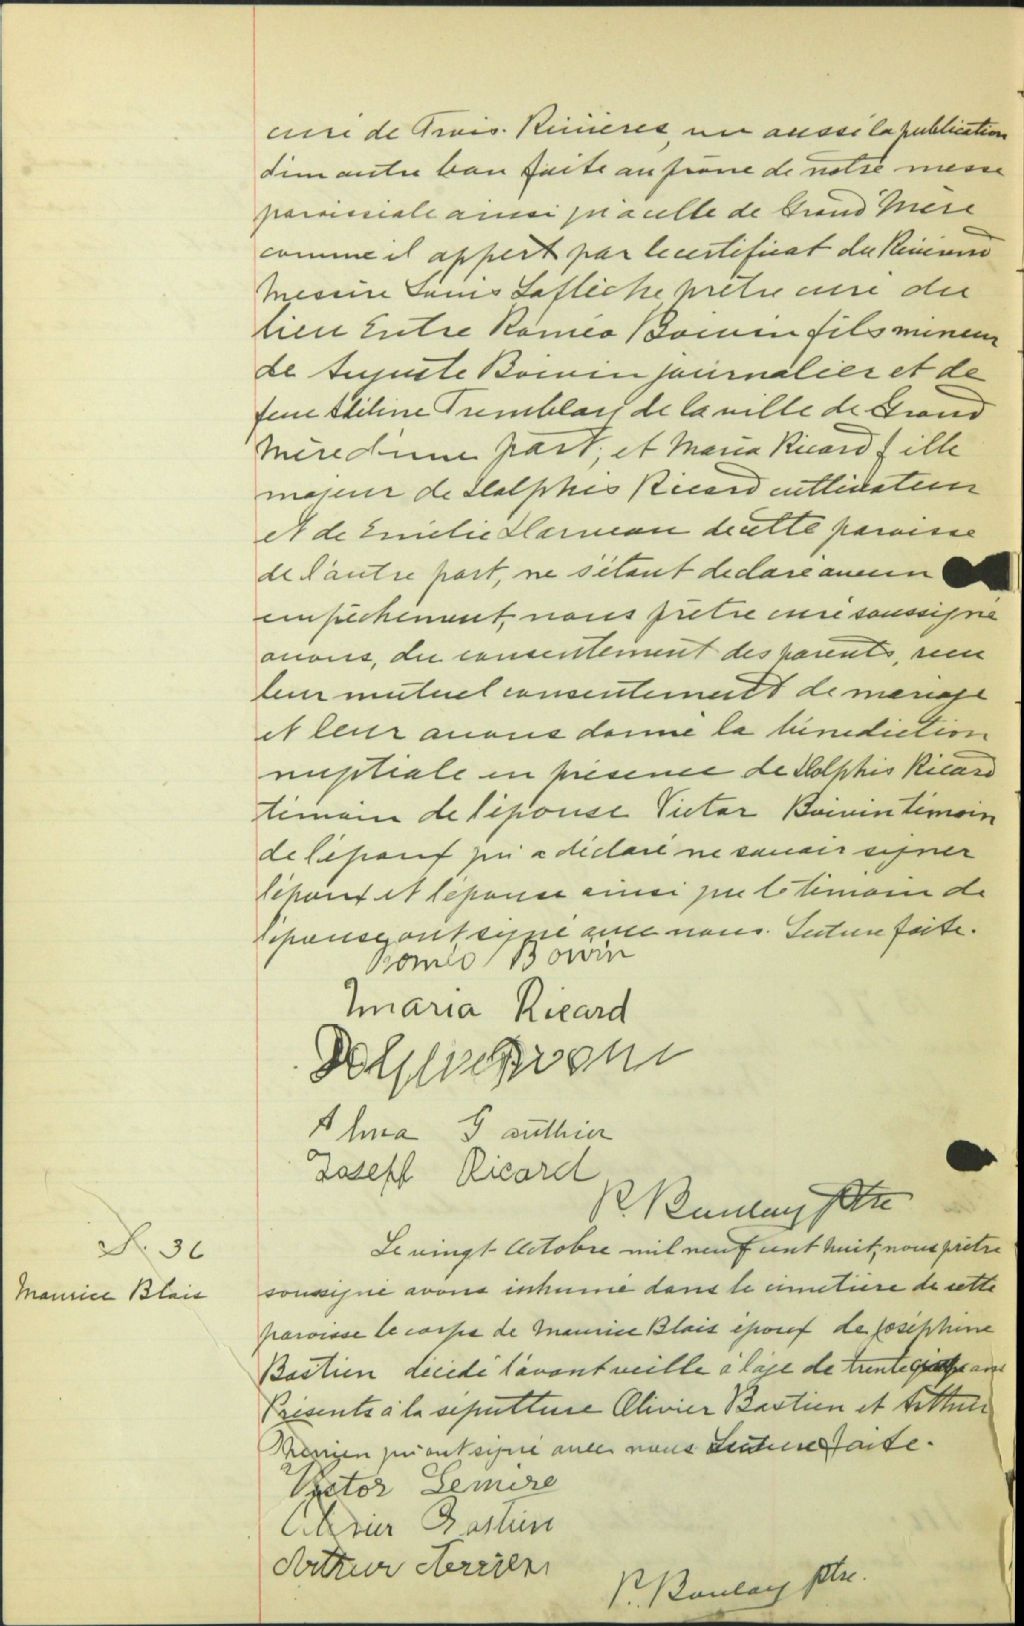 curé de Trois. Rivières, vu aussi la publication
d'un autre ban faite au prône de notre messe
paroissiale ainsi qu'a celle de Grand'Mère
comme il appert par le certificat du Révérend
Messire Louis Laflèche prêtre curé du
lieu Entre Roméo Boivin fils mineur
de Auguste Boivin journalier et de
feue Adéline Tremblay de la ville de Grand
Mère d'une part, et Maria Ricard fille
majeur de Dolphis Ricard cultivateur
et de Emélie Darveau de cette paroisse
de l'autre part, ne s'étant declaré aucun
empêchement, nous prêtre curé soussigné
avons, du consentement des parents, recu
leur mutuel consentement de mariage
et leur avons donné la bénediction
nuptiale en présence de Dolphis Ricard
témoin de l'épouse Victor Boivin témoin
de l'époux qui a déclaré ne savoir signer
l'époux et l'épouse ainsi que le témoin de
l'épouse ont signé avec nous. Lecture faite.
Roméo Boivin
Maria Ricard
Alma Gauthier
Joseph Ricard
P. Boulay Ptre
S. 36
Maurice Blais
Le vingt Octobre mil neuf cent huit, nous prêtre
soussigné avons inhumé dans le cimetière de cette
paroisse le corps de Maurice Blais époux de Joséphine
Bastien décédé l'avant veille à l'age de trente ans
Présents à la sépulture Olivier Bastien et Arthur
Therrien qui ont signé avec nous Lecture faite.
Victor Lemire
Olivier Bastien
Arthur Terrien
P. Boulay ptre.